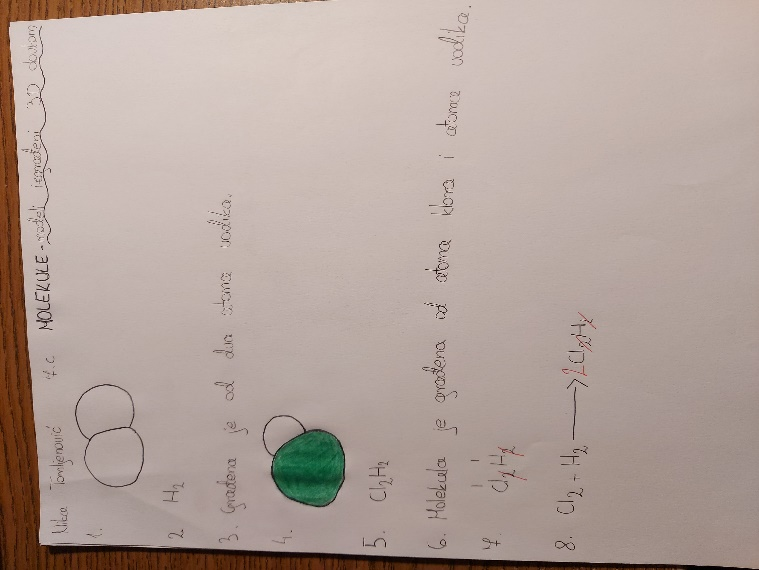 Nika Tomljenović 7.c MOLEKULE - rađeli izgrađeni 3D davam
1.
2. H₂
3. Građena je od dva atoma vodika.
4.
5. Cl₂H₂
6. Molekula je građena od atoma klora i atoma vodika.
7. Cl₂H₂
8. Cl₂ + H₂ ⟶ 2Cl₂H₂